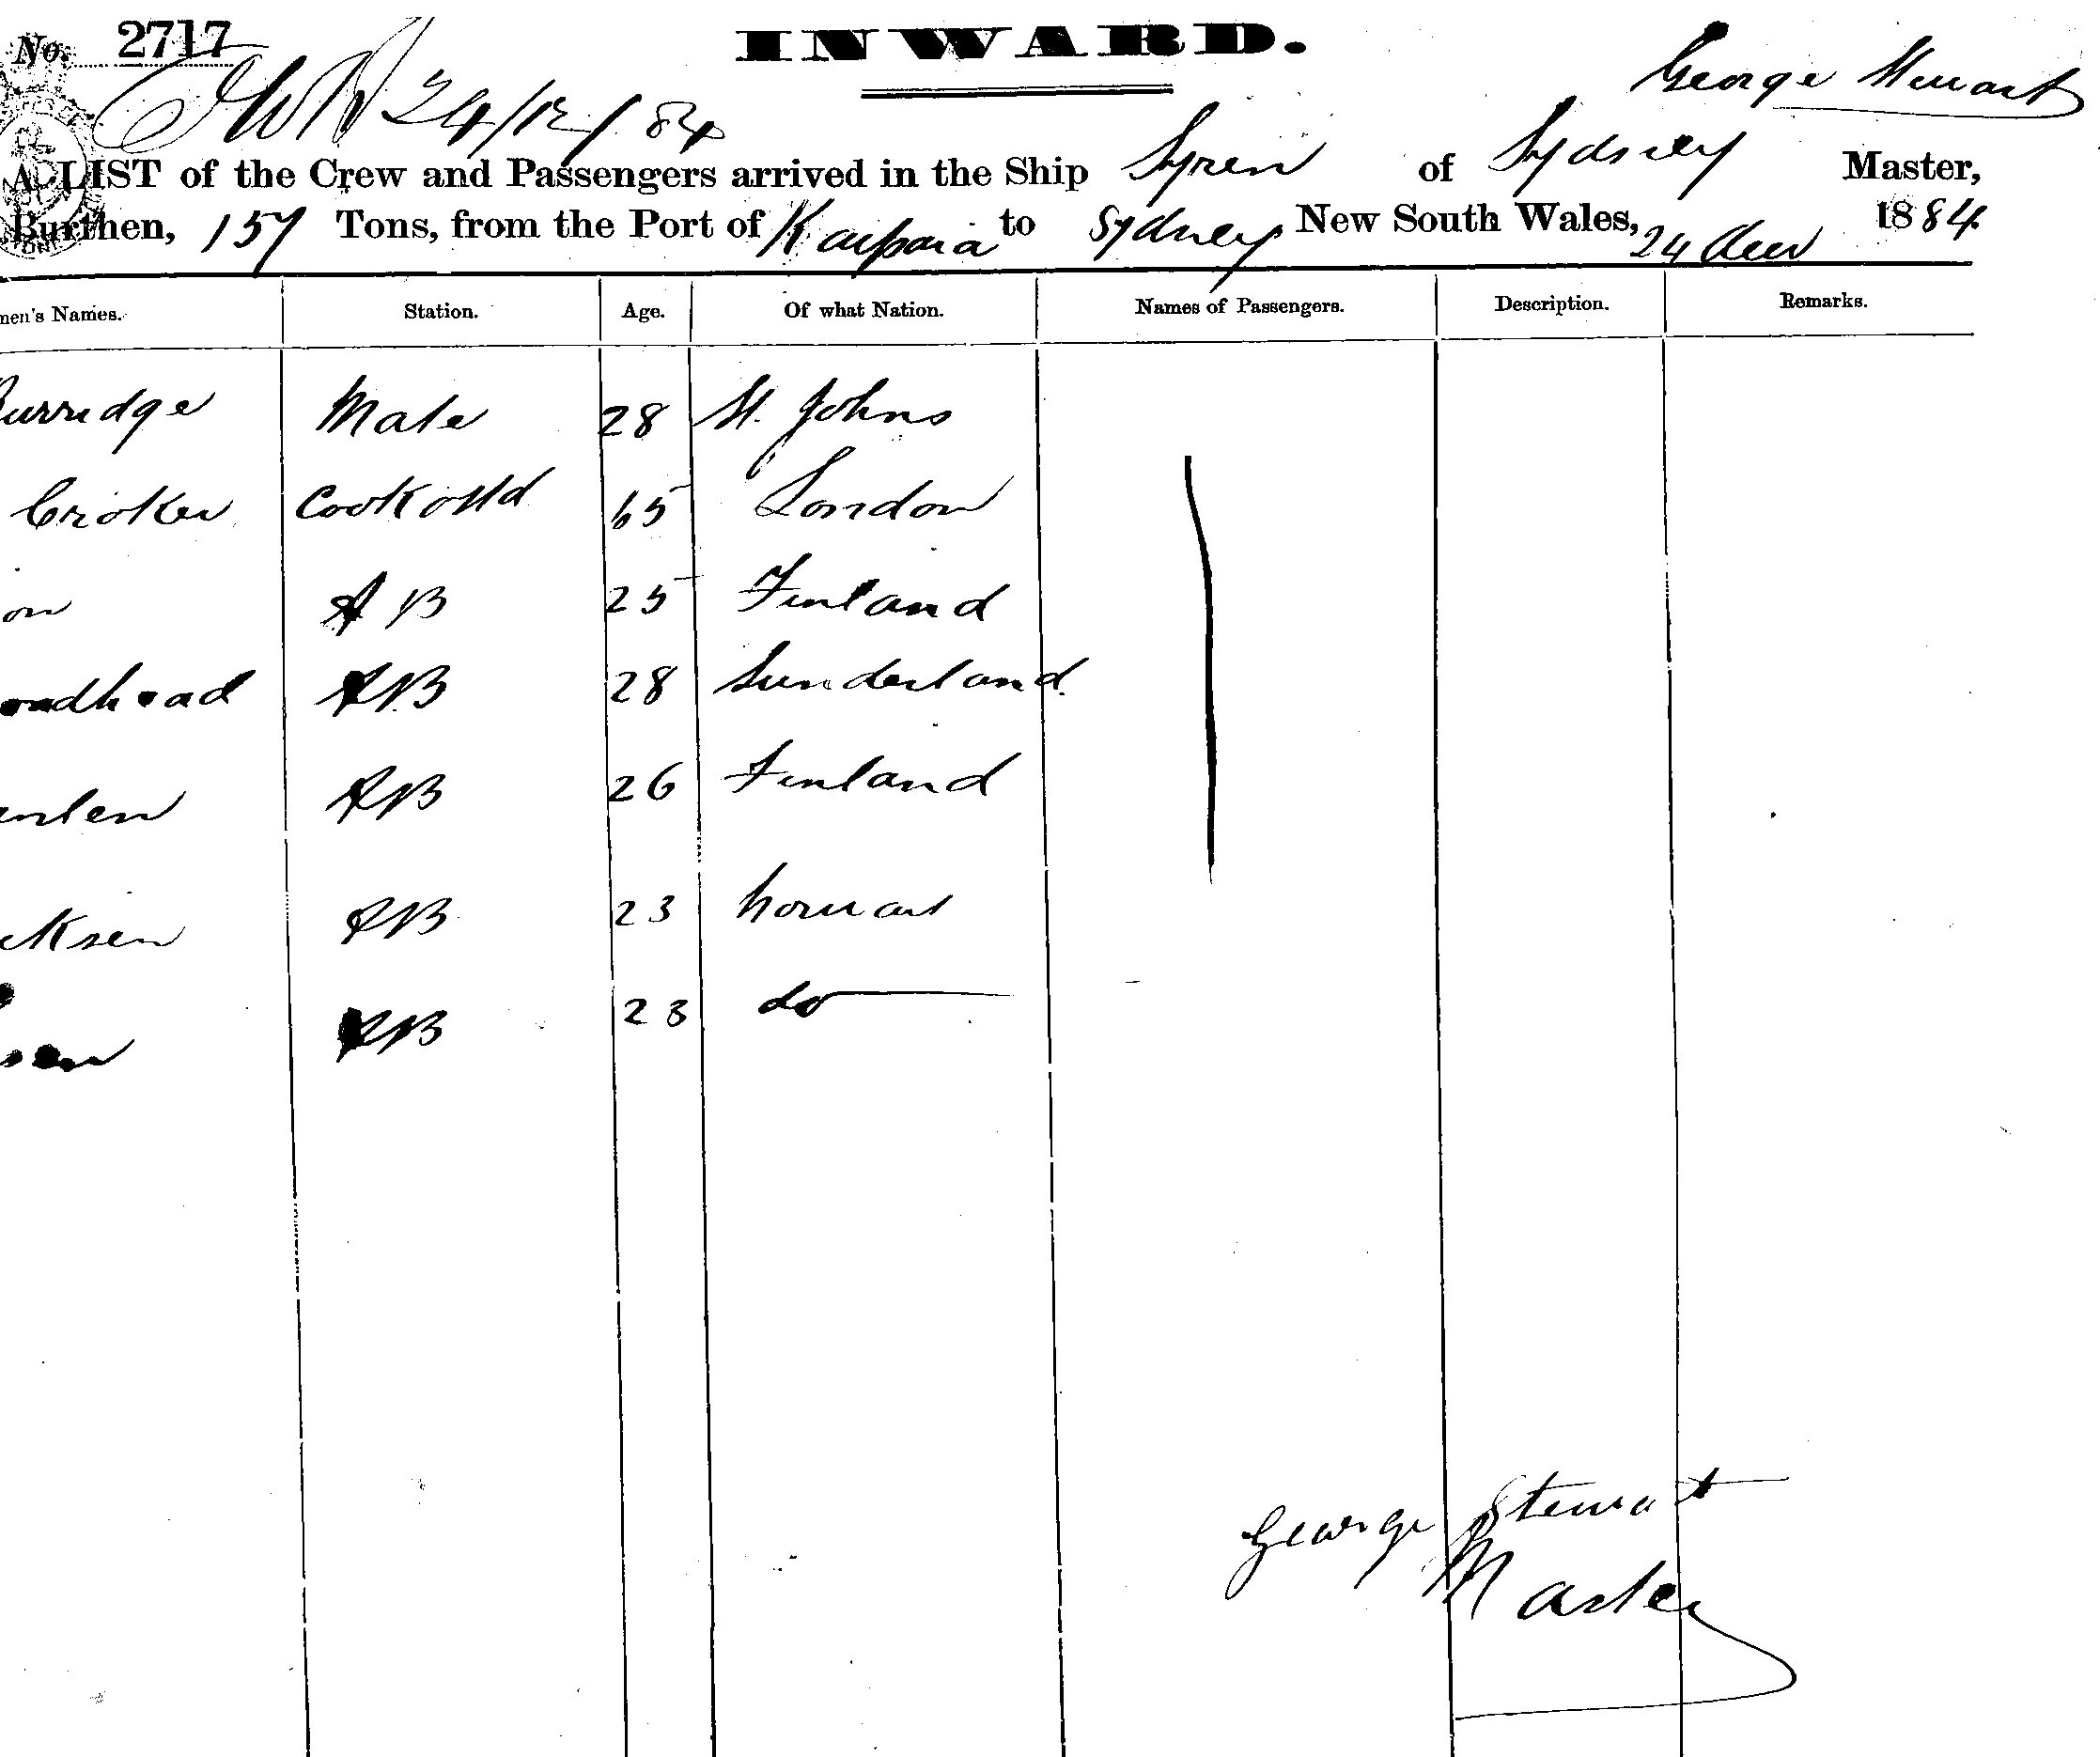 No. 2717
INWARD.
George Stewart
24/12/84
A LIST of the Crew and Passengers arrived in the Ship Syren of Sydney Master,
Burthen, 157 Tons, from the Port of Kaipara to Sydney New South Wales, 24 Decr 1884
men's Names. Station. Age. Of what Nation. Names of Passengers. Description. Remarks.
Burridge Mate 28 St. Johns
Croker Cook & Std 65 London
on AB 25 Finland
oodhead AB 28 Sunderland
AB 26 Finland
cksen AB 23
sen AB 23 do
George Stewart
Master